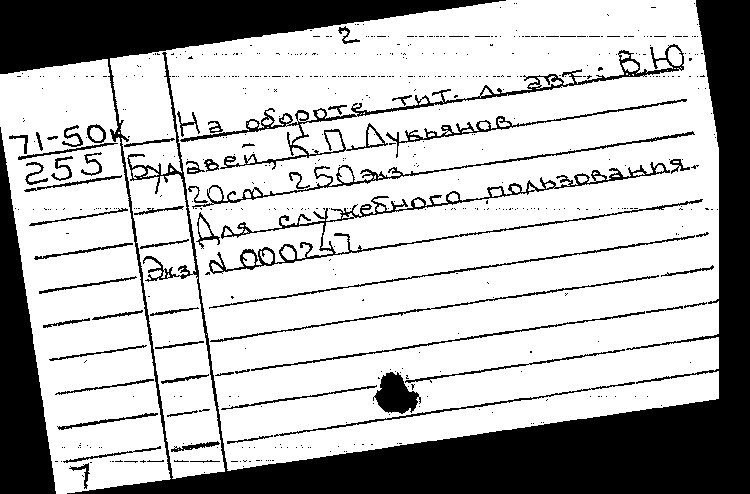 2
На обороте тит. л. авт.: В.Ю.
71-50к
255 Будавей, К.П. Лукьянов
20см. 250экз.
Для служебного пользования
Экз. N 000247.
7